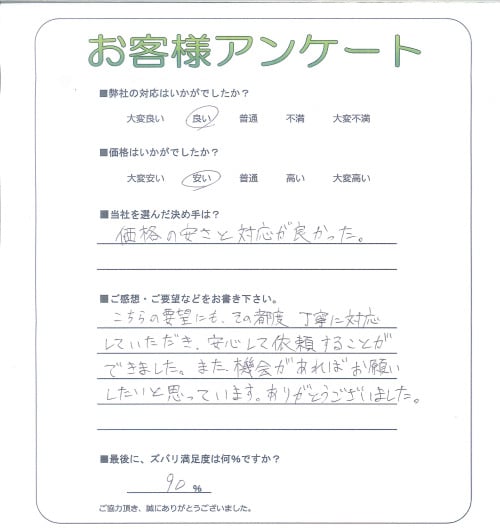 お客様アンケート
■弊社の対応はいかがでしたか？
大変良い 良い 普通 不満 大変不満
■価格はいかがでしたか？
大変安い 安い 普通 高い 大変高い
■当社を選んだ決め手は？
価格の安さと対応が良かった。
■ご感想・ご要望などをお書き下さい。
こちらの要望にも、その都度 丁寧に対応
していただき、安心して依頼することが
できました。また機会があればお願い
したいと思っています。ありがとうございました。
■最後に、ズバリ満足度は何％ですか？
90 %
ご協力頂き、誠にありがとうございました。